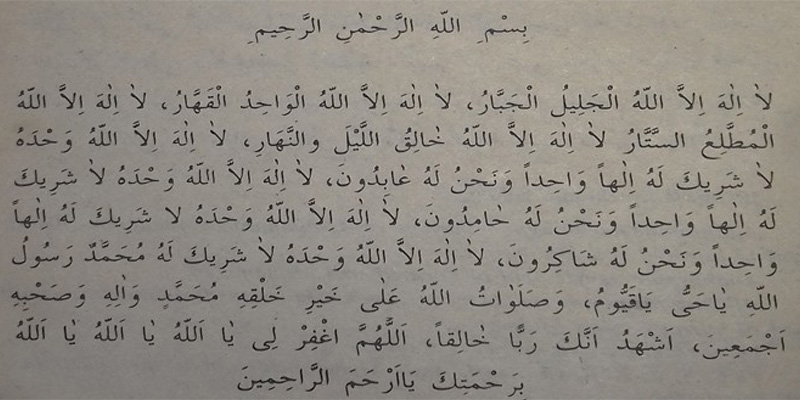 بِسْمِ اللّٰهِ الرَّحْمٰنِ الرَّحِيمِ
لاٰ اِلٰهَ اِلاَّ اللّٰهُ الْجَلِيلُ الْجَبَّارُ، لاٰ اِلٰهَ اِلاَّ اللّٰهُ الْوَاحِدُ الْقَهَّارُ، لاٰ اِلٰهَ اِلاَّ اللّٰهُ
الْمُطَّلِعُ السَّتَّارُ لاٰ اِلٰهَ اِلاَّ اللّٰهُ خٰالِقُ اللَّيْلَ والنَّهَارِ، لاٰ اِلٰهَ اِلاَّ اللّٰهُ وَحْدَهُ
لاٰ شَرِيكَ لَهُ اِلٰهاً وَاحِداً وَنَحْنُ لَهُ عٰابِدُونَ، لاٰ اِلٰهَ اِلاَّ اللّٰهُ وَحْدَهُ لاٰ شَرِيكَ
لَهُ اِلٰهاً وَاحِداً وَنَحْنُ لَهُ حٰامِدُونَ، لاٰ اِلٰهَ اِلاَّ اللّٰهُ وَحْدَهُ لا شَرِيكَ لَهُ اِلٰهاً
وَاحِداً وَنَحْنُ لَهُ شَاكِرُونَ، لاٰ اِلٰهَ اِلاَّ اللّٰهُ وَحْدَهُ لاٰ شَرِيكَ لَهُ مُحَمَّدٌ رَسُولُ
اللّٰهِ يٰاحَىُّ يَاقَيُّومُ، وَصَلَوٰاتُ اللّٰهُ عَلٰى خَيْرِ خَلْقِهِ مُحَمَّدٍ وَاٰلِهِ وَصَحْبِهِ
اَجْمَعِينَ، اَشْهَدُ اَنَّكَ رَبًّا خٰالِقاً، اَللّٰهُمَّ اغْفِرْ لِى يٰا اَللّٰهُ يٰا اَللّٰهُ يٰا اَللّٰهُ
بِرَحْمَتِكَ يَااَرْحَمَ الرَّاحِمِينَ